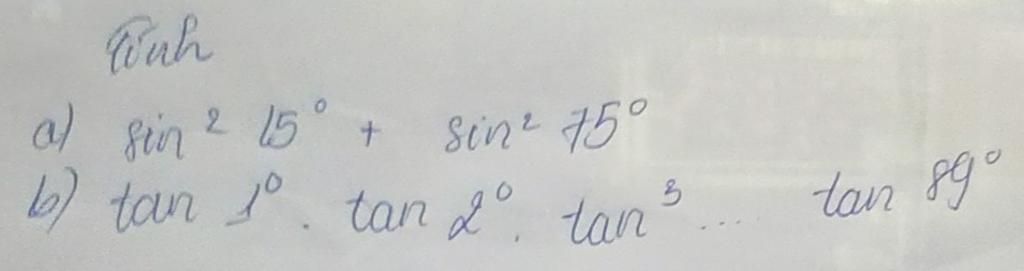 Tính
a) sin² 15° + sin² 75°
b) tan 1° . tan 2° . tan ³ ... tan 89°